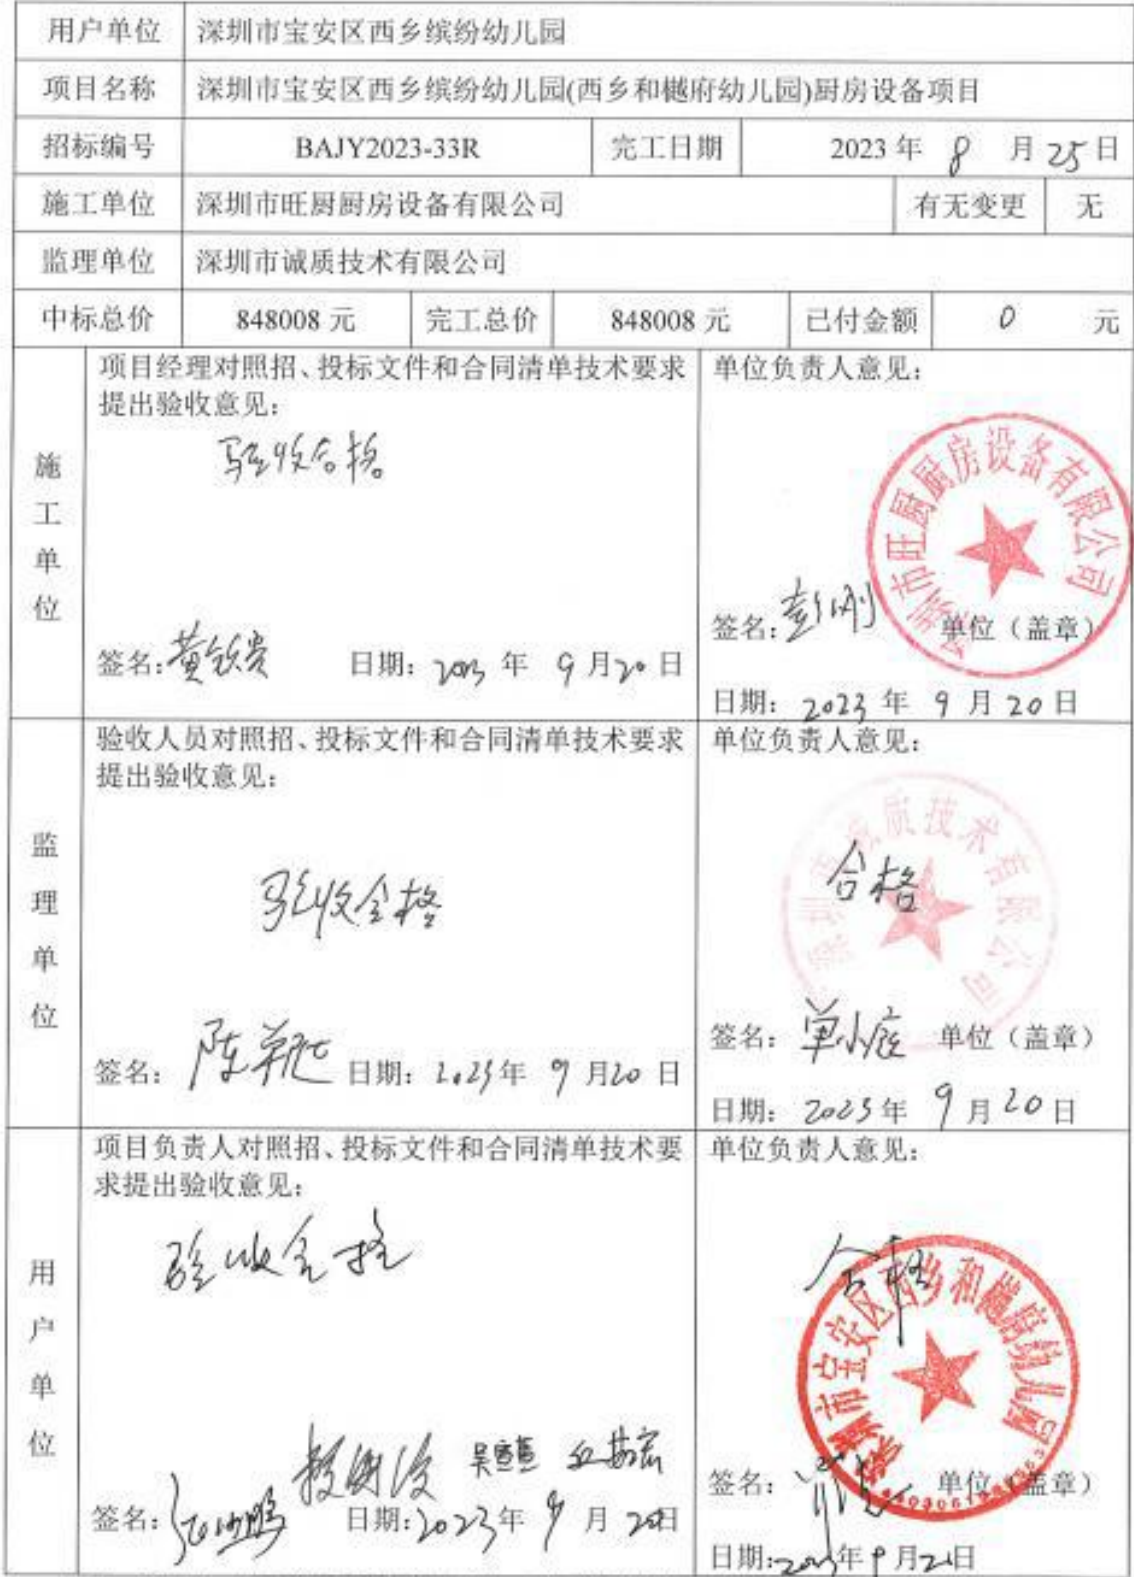 用户单位 深圳市宝安区西乡缤纷幼儿园
项目名称 深圳市宝安区西乡缤纷幼儿园(西乡和樾府幼儿园)厨房设备项目
招标编号 BAJY2023-33R 完工日期 2023 年 8 月 25 日
施工单位 深圳市旺厨厨房设备有限公司 有无变更 无
监理单位 深圳市诚质技术有限公司
中标总价 848008 元 完工总价 848008 元 已付金额 0 元
施工单位
项目经理对照招、投标文件和合同清单技术要求
提出验收意见：
验收合格
签名：黄铁贵 日期：2023 年 9 月 20 日
单位负责人意见：
深圳市旺厨厨房设备有限公司
签名：彭刚 单位（盖章）
日期：2023 年 9 月 20 日
监理单位
验收人员对照招、投标文件和合同清单技术要求
提出验收意见：
验收合格
签名：陈 日期：2023 年 9 月 20 日
单位负责人意见：
合格
深圳市诚质技术有限公司
签名：单小 单位（盖章）
日期：2023 年 9 月 20 日
用户单位
项目负责人对照招、投标文件和合同清单技术要
求提出验收意见：
验收合格
签名： 日期：2023 年 9 月 20 日
单位负责人意见：
合格
深圳市宝安区西乡和樾府幼儿园
签名： 单位（盖章）
日期：2023 年 9 月 20 日